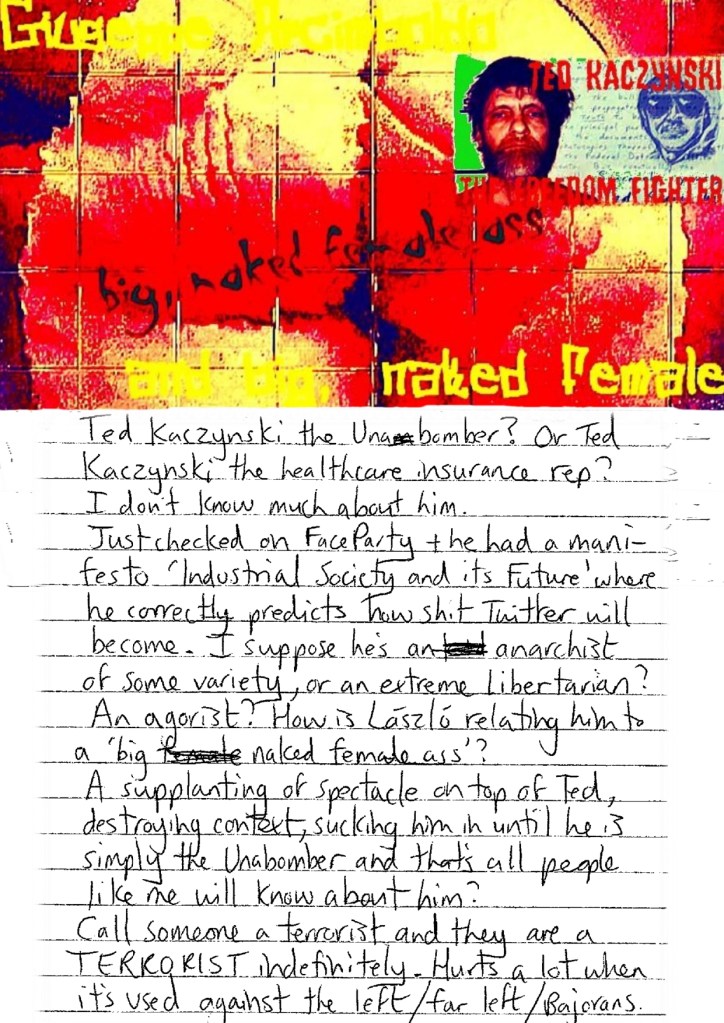 Giuseppe Arcimboldo
TED KACZYNSKI
THE FREEDOM FIGHTER
big, naked female ass
and big, naked female
Ted Kaczynski the Unabomber? Or Ted
Kaczynski the healthcare insurance rep?
I don't know much about him.
Just checked on FaceParty + he had a mani-
festo 'Industrial Society and its Future' where
he correctly predicts how shit Twitter will
become. I suppose he's an anarchist
of some variety, or an extreme libertarian?
An agorist? How is László relating him to
a 'big naked female ass'?
A supplanting of spectacle on top of Ted,
destroying context, sucking him in until he is
simply the Unabomber and that's all people
like me will know about him?
Call someone a terrorist and they are a
TERRORIST indefinitely. Hurts a lot when
it's used against the left/far left/Bajorans.